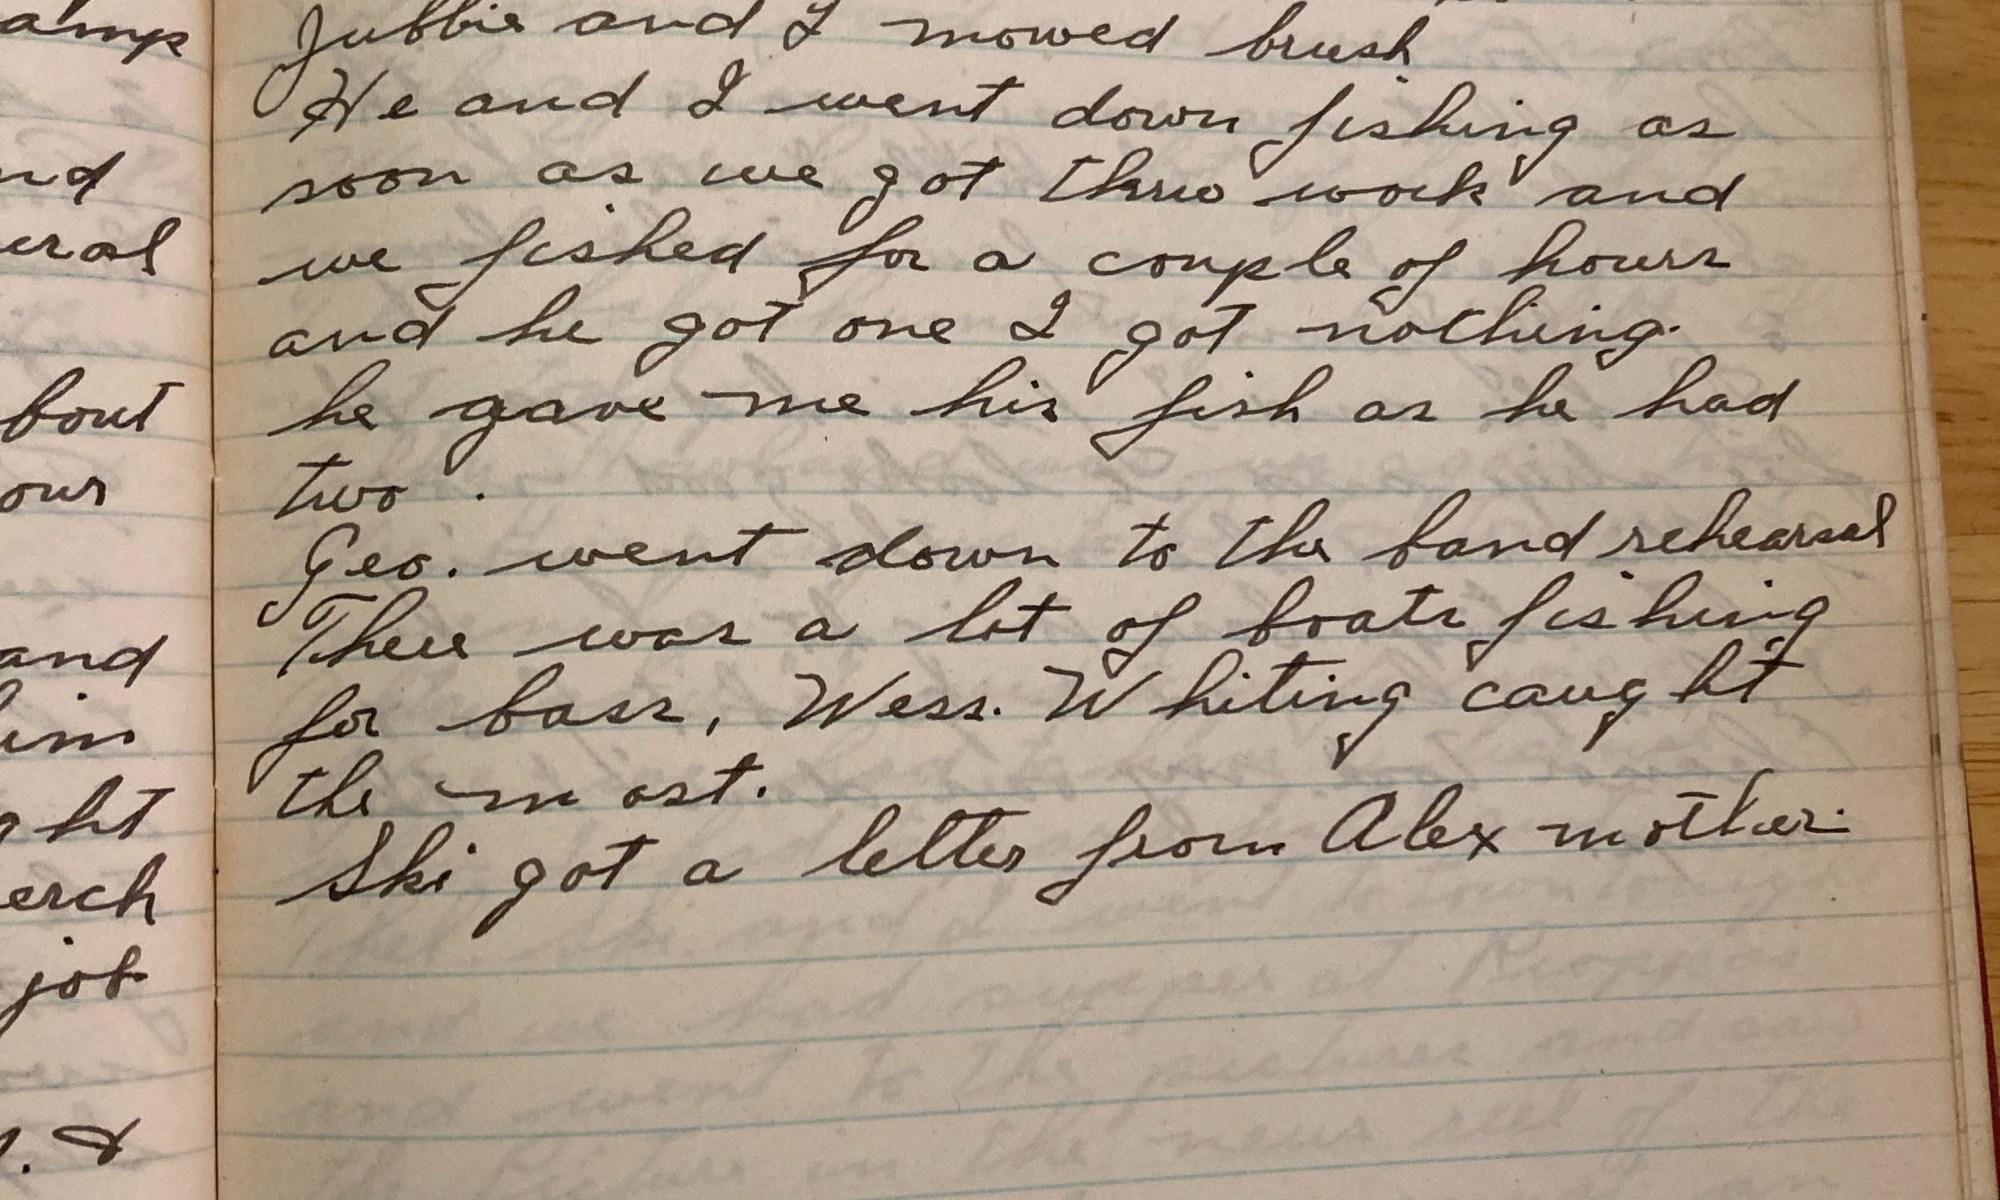 amp
nd
eral
bout
our
and
him
ght
erch
job
Jubbie and I mowed brush
He and I went down fishing as
soon as we got thru work and
we fished for a couple of hours
and he got one I got nothing.
he gave me his fish as he had
two.
Geo. went down to the band rehearsal
There was a lot of boats fishing
for bass, Wess. Whiting caught
the most.
Ski got a letter from Alex mother.